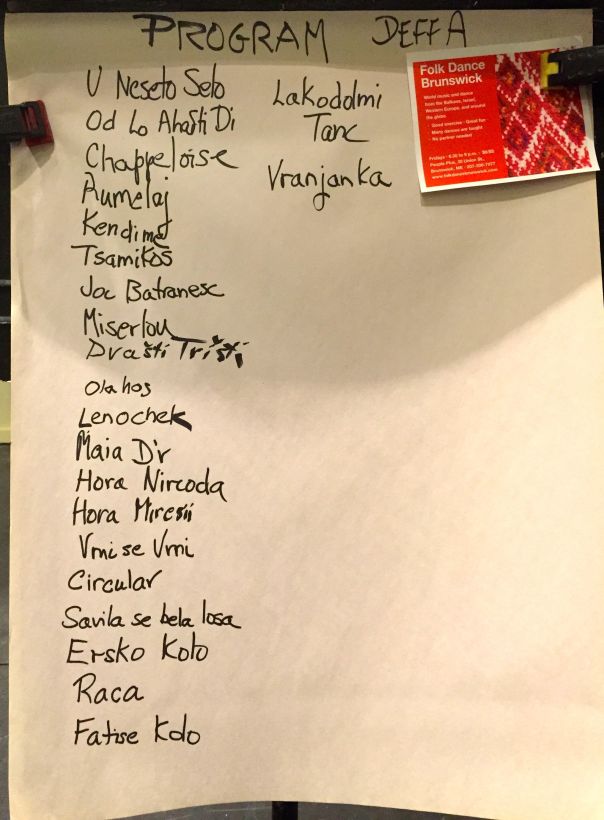 PROGRAM DEFFA
U Neseto Selo
Od Lo Ahašti Di
Chappeloise
Rumelaj
Kendime
Tsamikos
Joc Batranesc
Miserlou
Drašti Trišti
Olahos
Lenochek
Maia D'r
Hora Nircoda
Hora Miresii
Vmi se Vmi
Circular
Savila se bela losa
Ersko Kolo
Raca
Fatise Kolo
Lakodolmi
Tanc
Vranjanka
Folk Dance
Brunswick
World music and dance
from the Balkans, Israel,
Western Europe, and around
the globe.
- Good exercise - Great fun -
- Many dances are taught
- No partner needed
Brunswick, ME